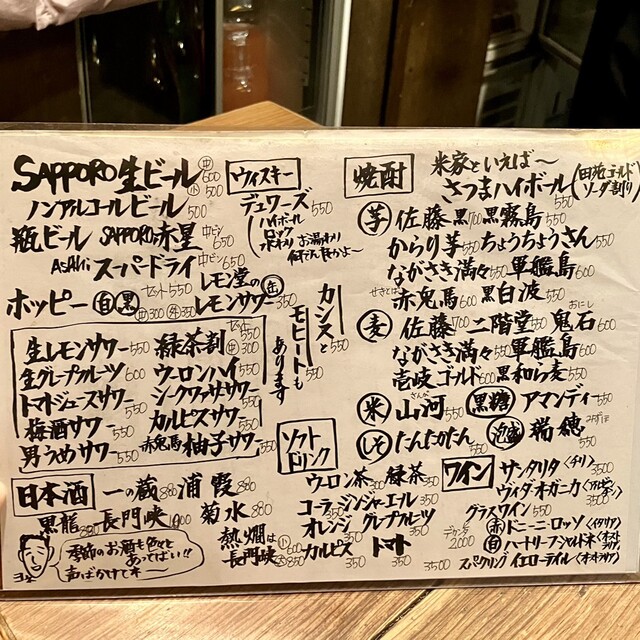 SAPPORO生ビール 中600 小500
ノンアルコールビール 500
瓶ビール SAPPORO赤星 中ビン650
ASAHI スーパードライ 中ビン650
ホッピー 白 黒 セット550 中300 外350
レモン堂の
レモンサワー 缶350
生レモンサワー 550
生グレープフルーツ 600
トマトジュースサワー 550
梅酒サワー 550
男うめサワー 550
緑茶割 セット550 中300
ウーロンハイ 550
シークワーサーサワー 550
カルピスサワー 550
赤兎馬 柚子サワー 550
カシスと 550
モヒートも 550
あります
ウィスキー
デュワーズ 550
ハイボール
ロック
水わり お湯わり
日本酒
一の蔵 880 浦霞 880
黒龍 880 長門峡 1000 菊水 880
熱燗は 小600
長門峡 大850
季節のお酒も色々と
あってばい!!
声ばかけて木ー
ヨネ
ソフト
ドリンク
ウーロン茶 300 緑茶 350
コーラ 350 ジンジャーエール 350
オレンジ 350 グレープフルーツ 350
カルピス 350 トマト 350
焼酎
米家といえば〜
さつまハイボール 550
(田苑ゴールド
ソーダ割り)
芋 佐藤黒 700 黒霧島 550
からり芋 550 ちょうちょうさん 550
ながさき満々 550 軍艦島 600
赤兎馬 600 黒白波 550
麦 佐藤 700 二階堂 550 鬼石 600
ながさき満々 550 軍艦島 600
壱岐ゴールド 600 黒和ら麦 550
米 山河 550 黒糖 アマンディー 550
しそ たんたかたん 550 泡盛 瑞穂 550
ワイン
サンタリタ〈チリ〉 3500
ヴィダ・オーガニカ〈アルゼンチン〉 3500
グラスワイン 550
デカンタ 2000
赤 ドニーニ・ロッソ〈イタリア〉
白 ハートリーフ・シャルドネ〈オーストラリア〉
3500 スパークリング イエローテイル〈オーストラリア〉